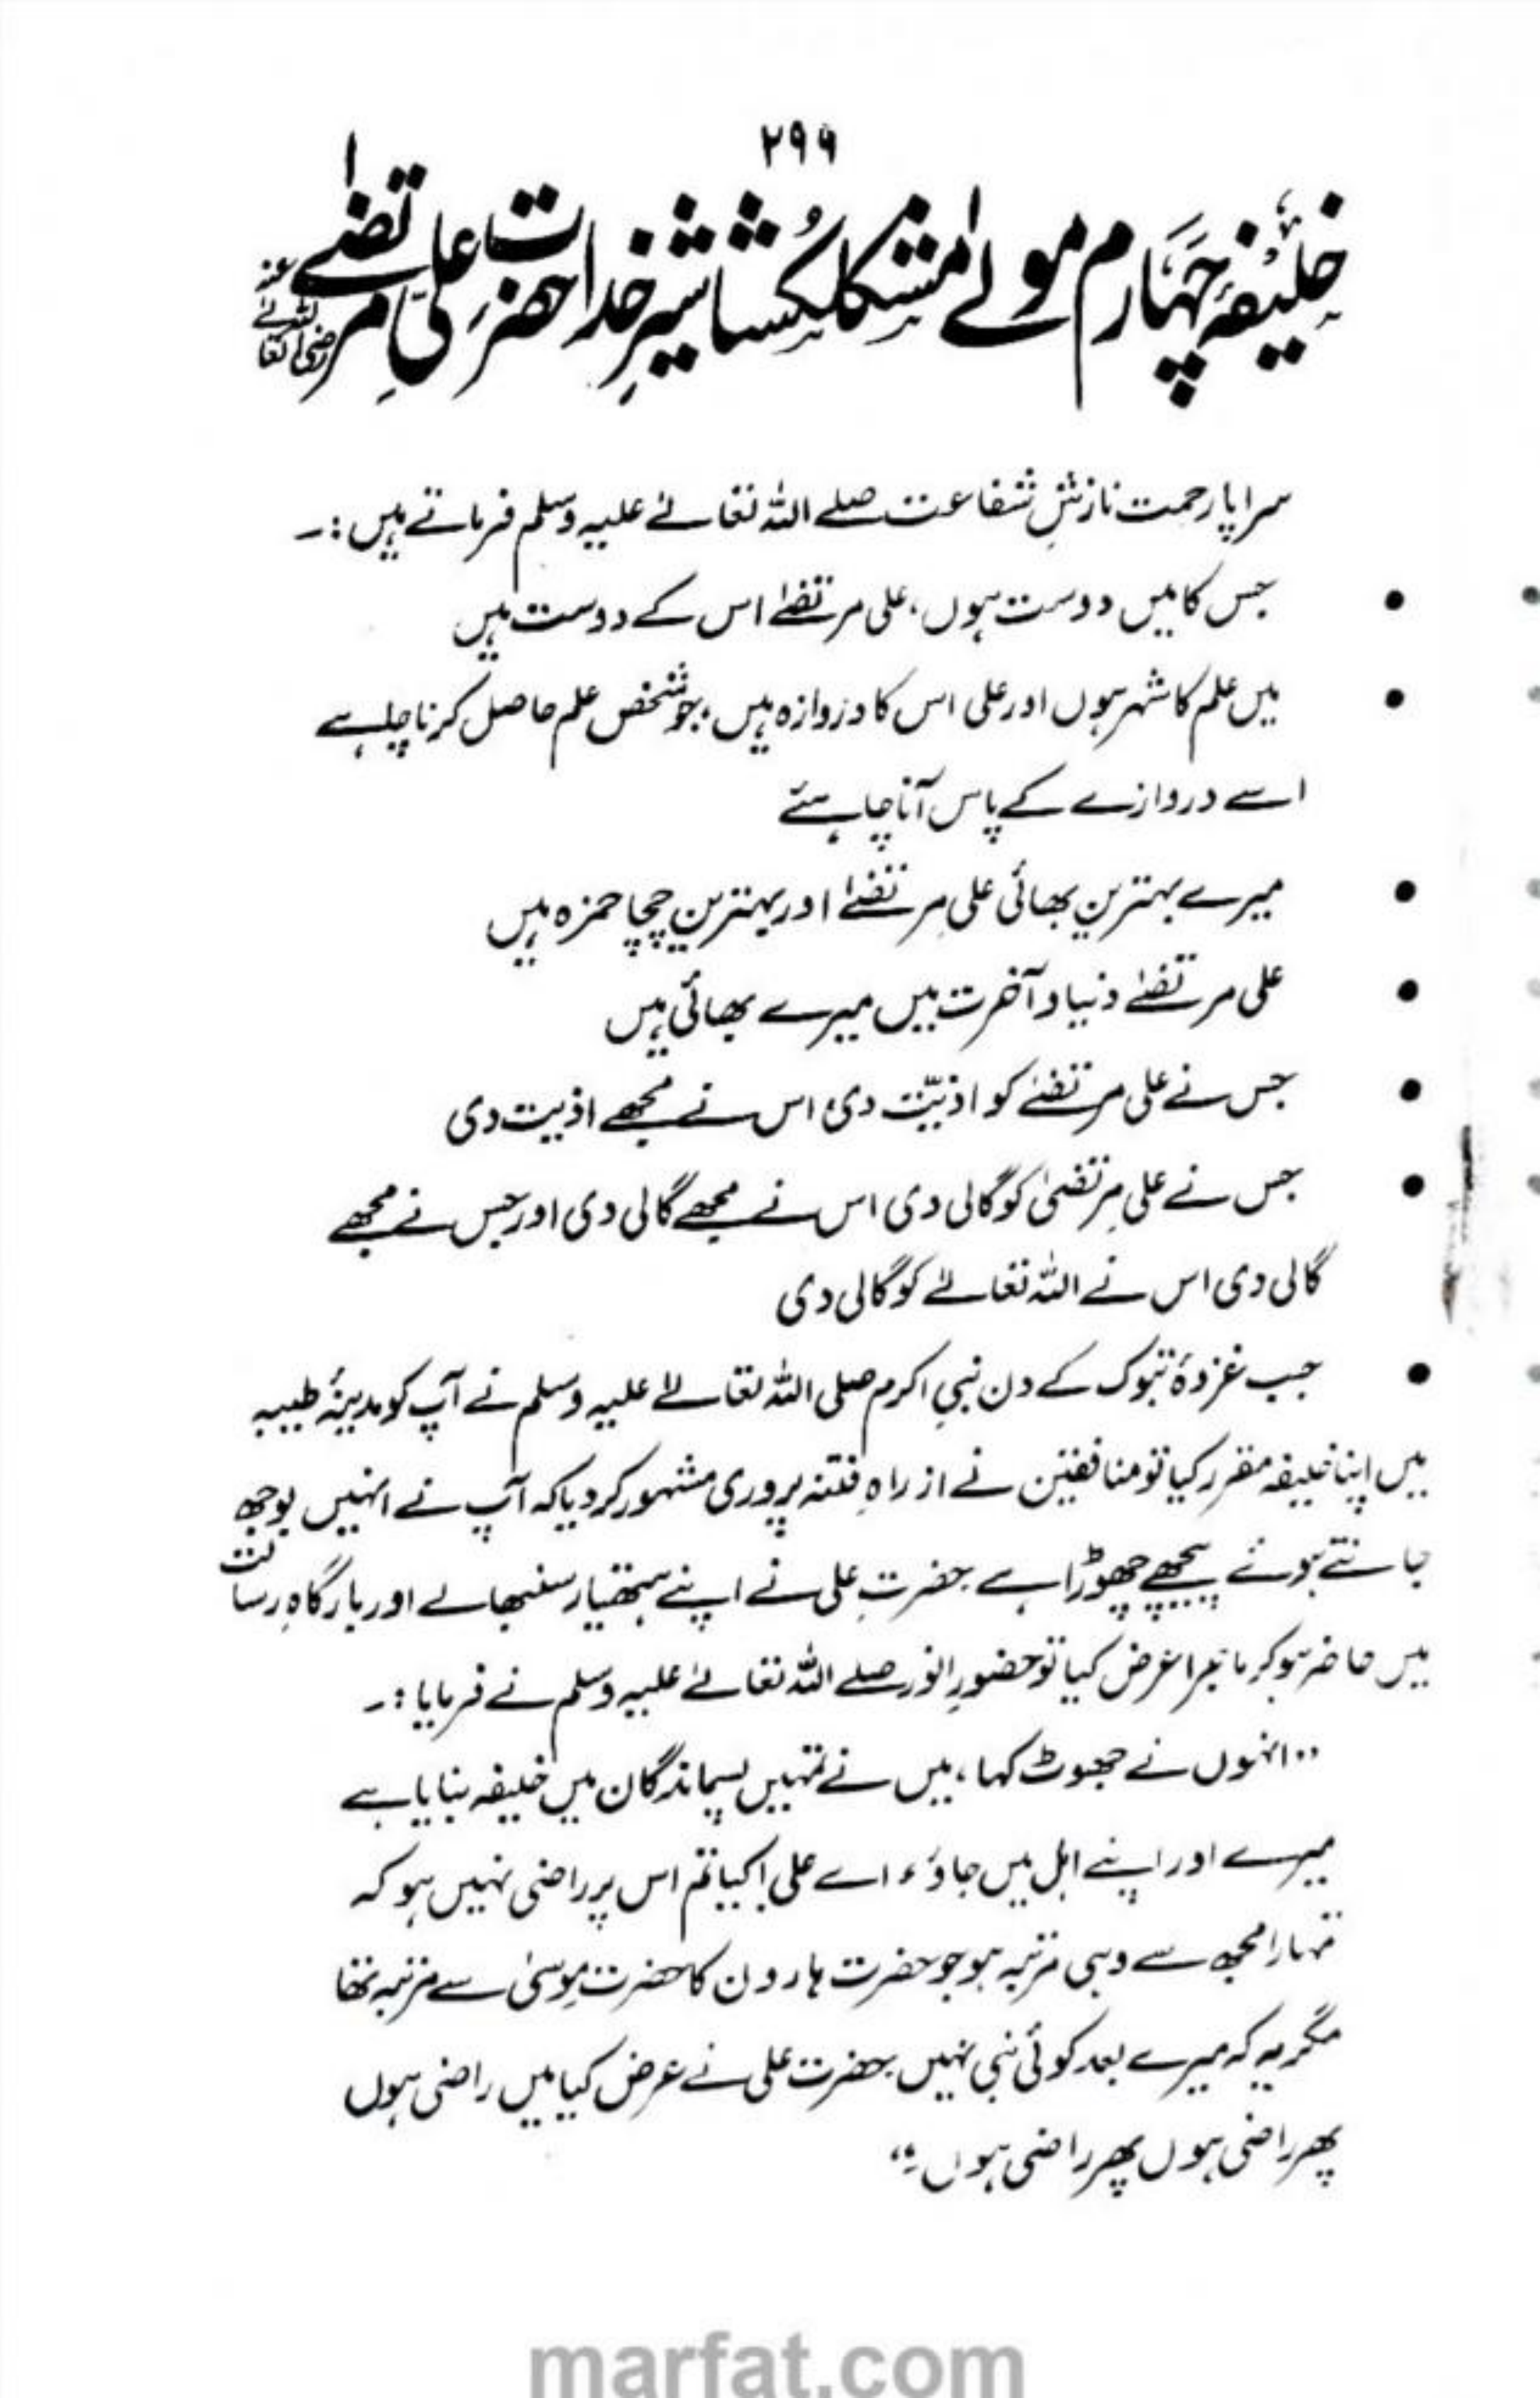 ۲۹۶
خلیفۂ چہارم مولےٰ مشکل کُشا شیرِ خدا حضرتِ علی مرتضےٰ رضی اللہ تعالےٰ عنہ
سراپا رحمت نازشِ شفاعت صلے اللہ تعالےٰ علیہ وسلم فرماتے ہیں :۔
• جس کا میں دوست ہوں، علی مرتضےٰ اس کے دوست ہیں
• میں علم کا شہر ہوں اور علی اس کا دروازہ ہیں، جو شخص علم حاصل کرنا چاہے
اسے دروازے کے پاس آنا چاہئے
• میرے بہترین بھائی علیِ مرتضےٰ اور بہترین چچا حمزہ ہیں
• علی مرتضےٰ دنیا و آخرت میں میرے بھائی ہیں
• جس نے علی مرتضےٰ کو اذیّت دی اس نے مجھے اذیت دی
• جس نے علیِ مرتضیٰ کو گالی دی اس نے مجھے گالی دی اور جس نے مجھے
گالی دی اس نے اللہ تعالےٰ کو گالی دی
• جب غزوۂ تبوک کے دن نبیِ اکرم صلی اللہ تعالےٰ علیہ وسلم نے آپ کو مدینۂ طیبہ
میں اپنا خلیفہ مقرر کیا تو منافقین نے از راہِ فتنہ پروری مشہور کر دیا کہ آپ نے انہیں بوجھ
جانتے ہوئے پیچھے چھوڑا ہے حضرتِ علی نے اپنے ہتھیار سنبھالے اور بارگاہِ رسالت
میں حاضر ہو کر ماجرا عرض کیا تو حضورِ انور صلے اللہ تعالےٰ علیہ وسلم نے فرمایا :۔
"انہوں نے جھوٹ کہا، میں نے تمہیں پسماندگان میں خلیفہ بنایا ہے
میرے اور اپنے اہل میں جاؤ، اے علی! کیا تم اس پر راضی نہیں ہو کہ
تمہارا مجھ سے وہی مرتبہ ہو جو حضرت ہارون کا حضرت موسیٰ سے مرتبہ تھا
مگر یہ کہ میرے بعد کوئی نبی نہیں حضرت علی نے عرض کیا میں راضی ہوں
پھر راضی ہوں پھر راضی ہوں۔"
marfat.com